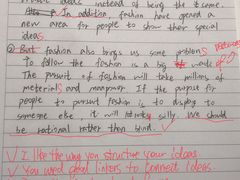 ideas instead of being the same.
In addition, fashion have opened a
new area for people to show their special
ideas.
② But fashion also brings us some problems
To follow the fashion is a big waste of
The pursuit of fashion will take millions of
materials and manpower. If the purpose for
people to pursuit fashion is to display to
someone else, it will silly. We should
be rational rather than blind.
✓ I like the way you structure your ideas.
✓ You used good linkers to connect ideas.